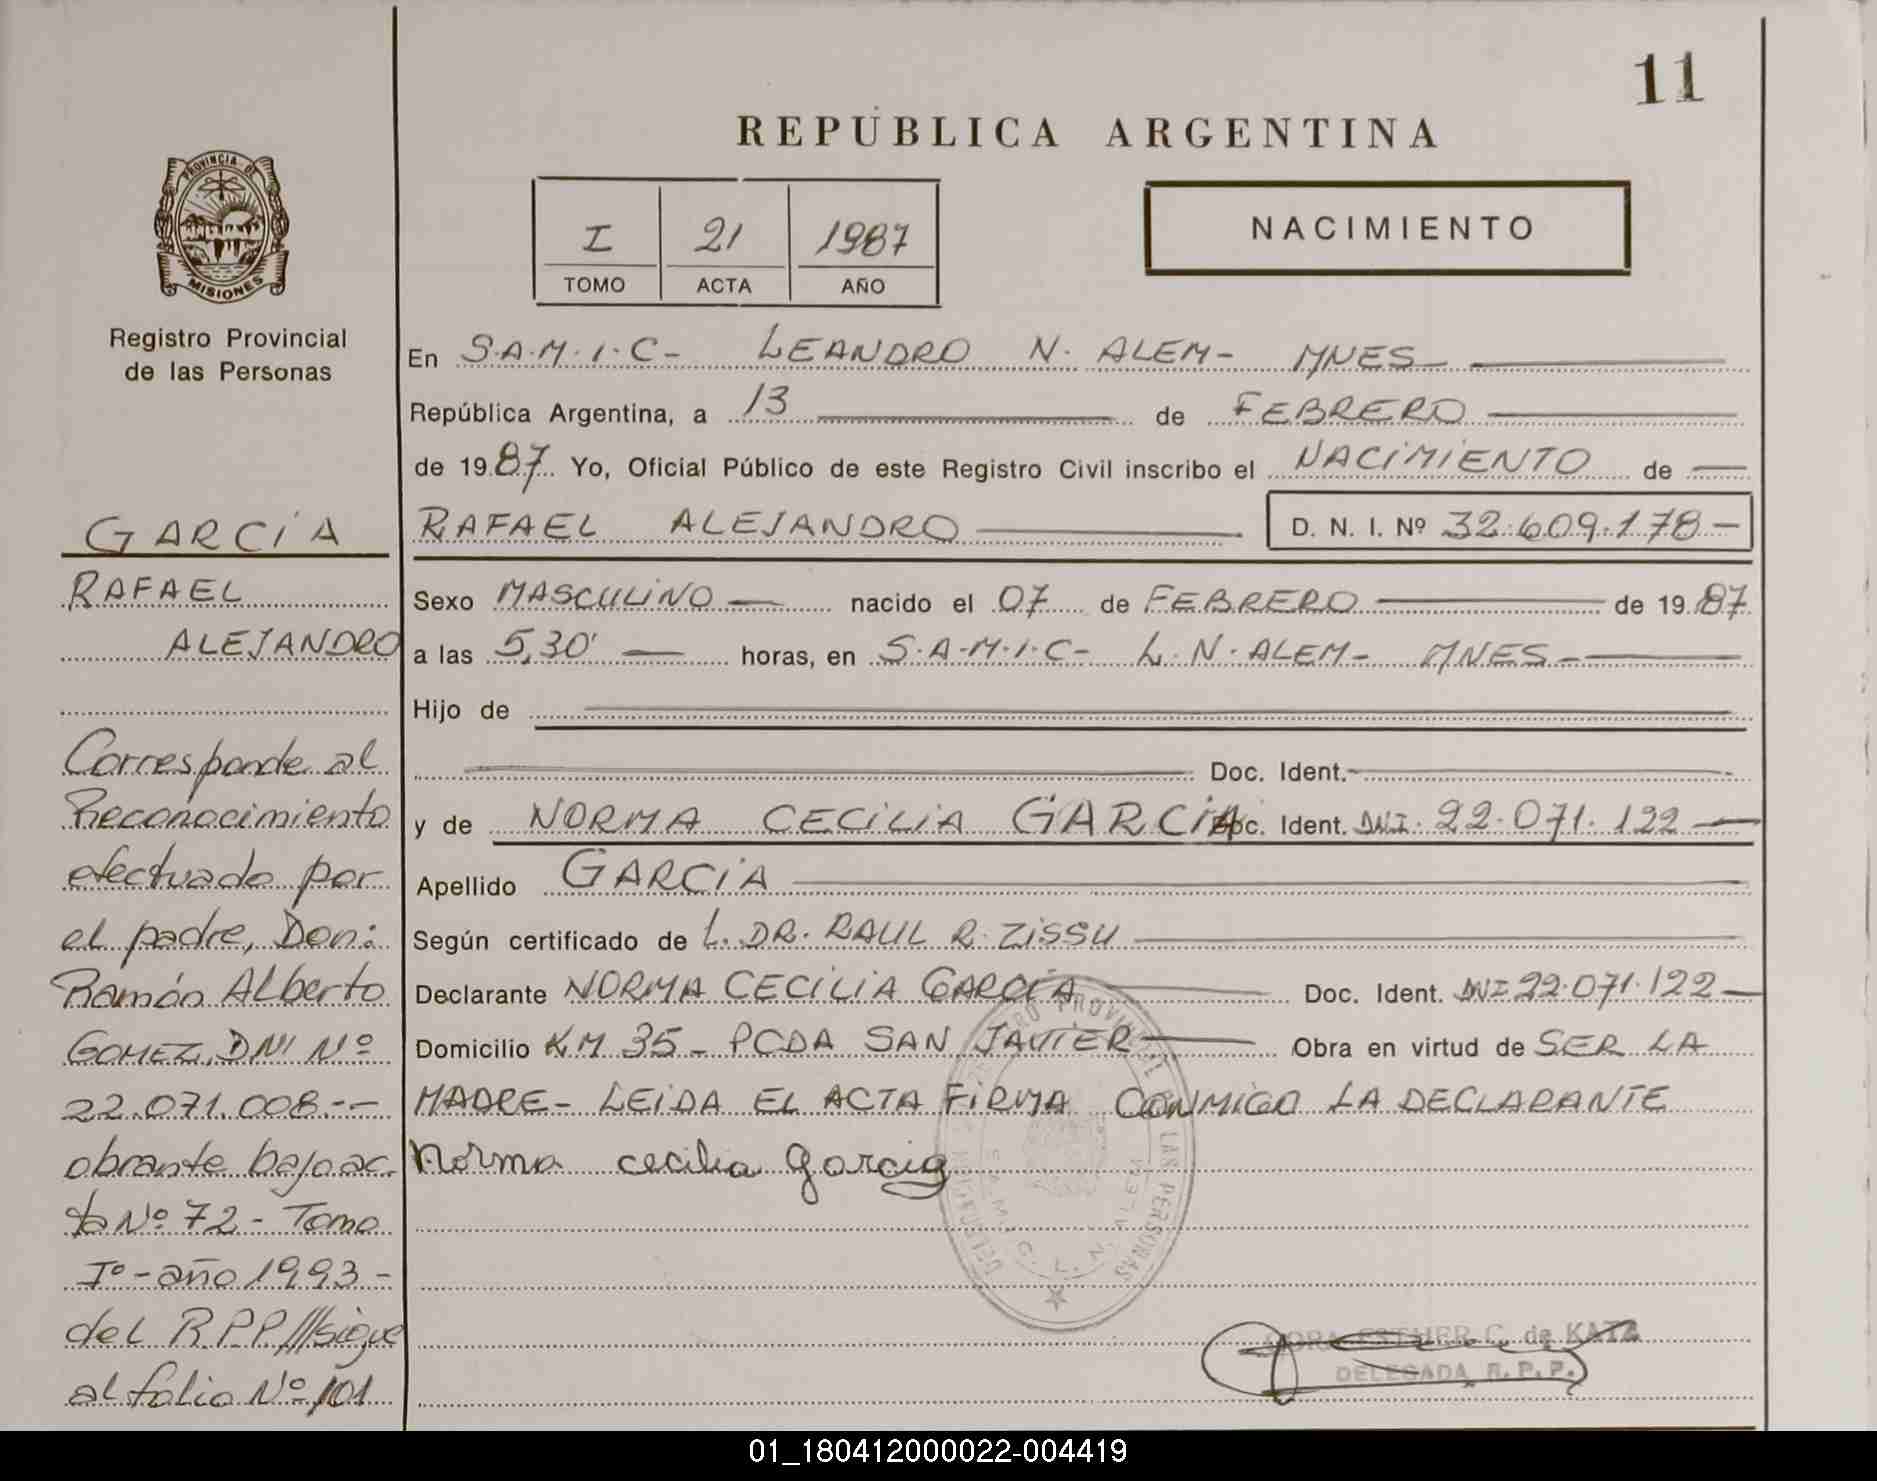 11
REPÚBLICA ARGENTINA
PROVINCIA DE
MISIONES
Registro Provincial
de las Personas
I 21 1987
TOMO ACTA AÑO
NACIMIENTO
En S.A.M.I.C- LEANDRO N. ALEM- MNES-
República Argentina, a 13 de FEBRERO
de 1987. Yo, Oficial Público de este Registro Civil inscribo el NACIMIENTO de
RAFAEL ALEJANDRO D. N. I. Nº 32.609.178-
Sexo MASCULINO nacido el 07 de FEBRERO de 1987
a las 5,30' horas, en S.A.M.I.C- L.N. ALEM- MNES-
Hijo de
Doc. Ident.
y de NORMA CECILIA GARCIA Doc. Ident. DNI. 22.071.122
Apellido GARCIA
Según certificado de L. DR. RAUL R. ZISSU
Declarante NORMA CECILIA GARCÍA Doc. Ident. DNI 22.071.122
Domicilio KM 35- PCDA SAN JAVIER Obra en virtud de SER LA
MADRE- LEIDA EL ACTA FIRMA CONMIGO LA DECLARANTE
Norma cecilia garcia
REGISTRO PROVINCIAL DE LAS PERSONAS
S.A.M.I.C. L. N. ALEM
ESTHER C. de KATZ
DELEGADA R. P. P.
GARCÍA
RAFAEL
ALEJANDRO
Corresponde al
Reconocimiento
efectuado por
el padre, Don:
Ramón Alberto
GOMEZ, DNI Nº
22.071.008.--
obrante bajo ac-
ta Nº 72 - Tomo
Iº - año 1993 -
del R.P.P.///sigue
al folio Nº 101
01_180412000022-004419